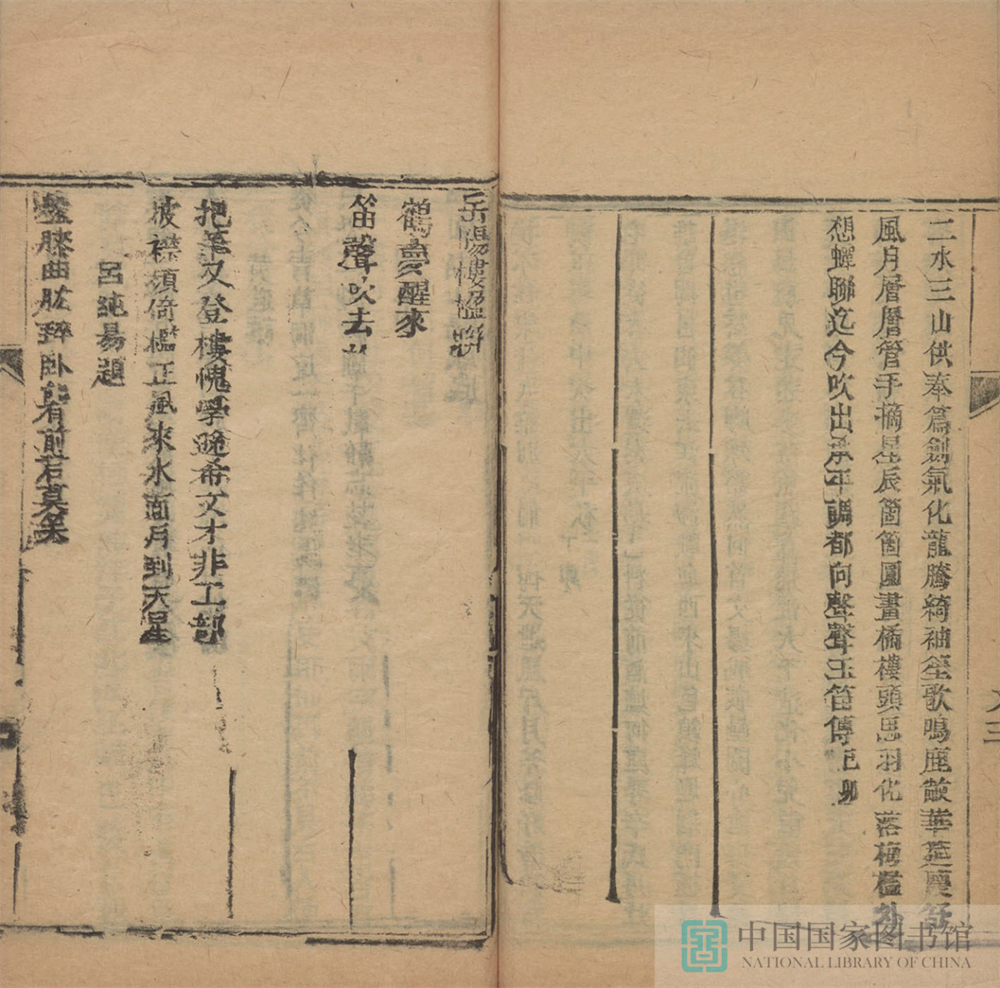 二水三山供奉篇劍氣化龍騰綺袖笙歌鳴鹿敞華筵慶
風月層層管手摘星辰箇箇圓畫橋樓頭思羽化落梅檻外
想蟬聯迄今吹出承平調都向聲聲玉笛傳
岳陽樓楹聯
鶴夢醒來
笛聲吹去
把筆又登樓愧學疏希文才非工部
披襟頻倚檻正風來水面月到天星
呂純昜題
膝曲肱醉臥能看前若莫笑
中国国家图书馆
NATIONAL LIBRARY OF CHINA